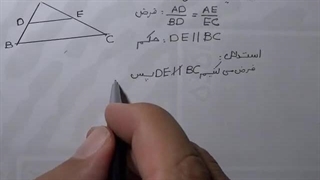 D
E
B
C
فرض: AD/BD = AE/EC
حکم: DE||BC
استدلال:
فرض می کنیم DE∦BC پس